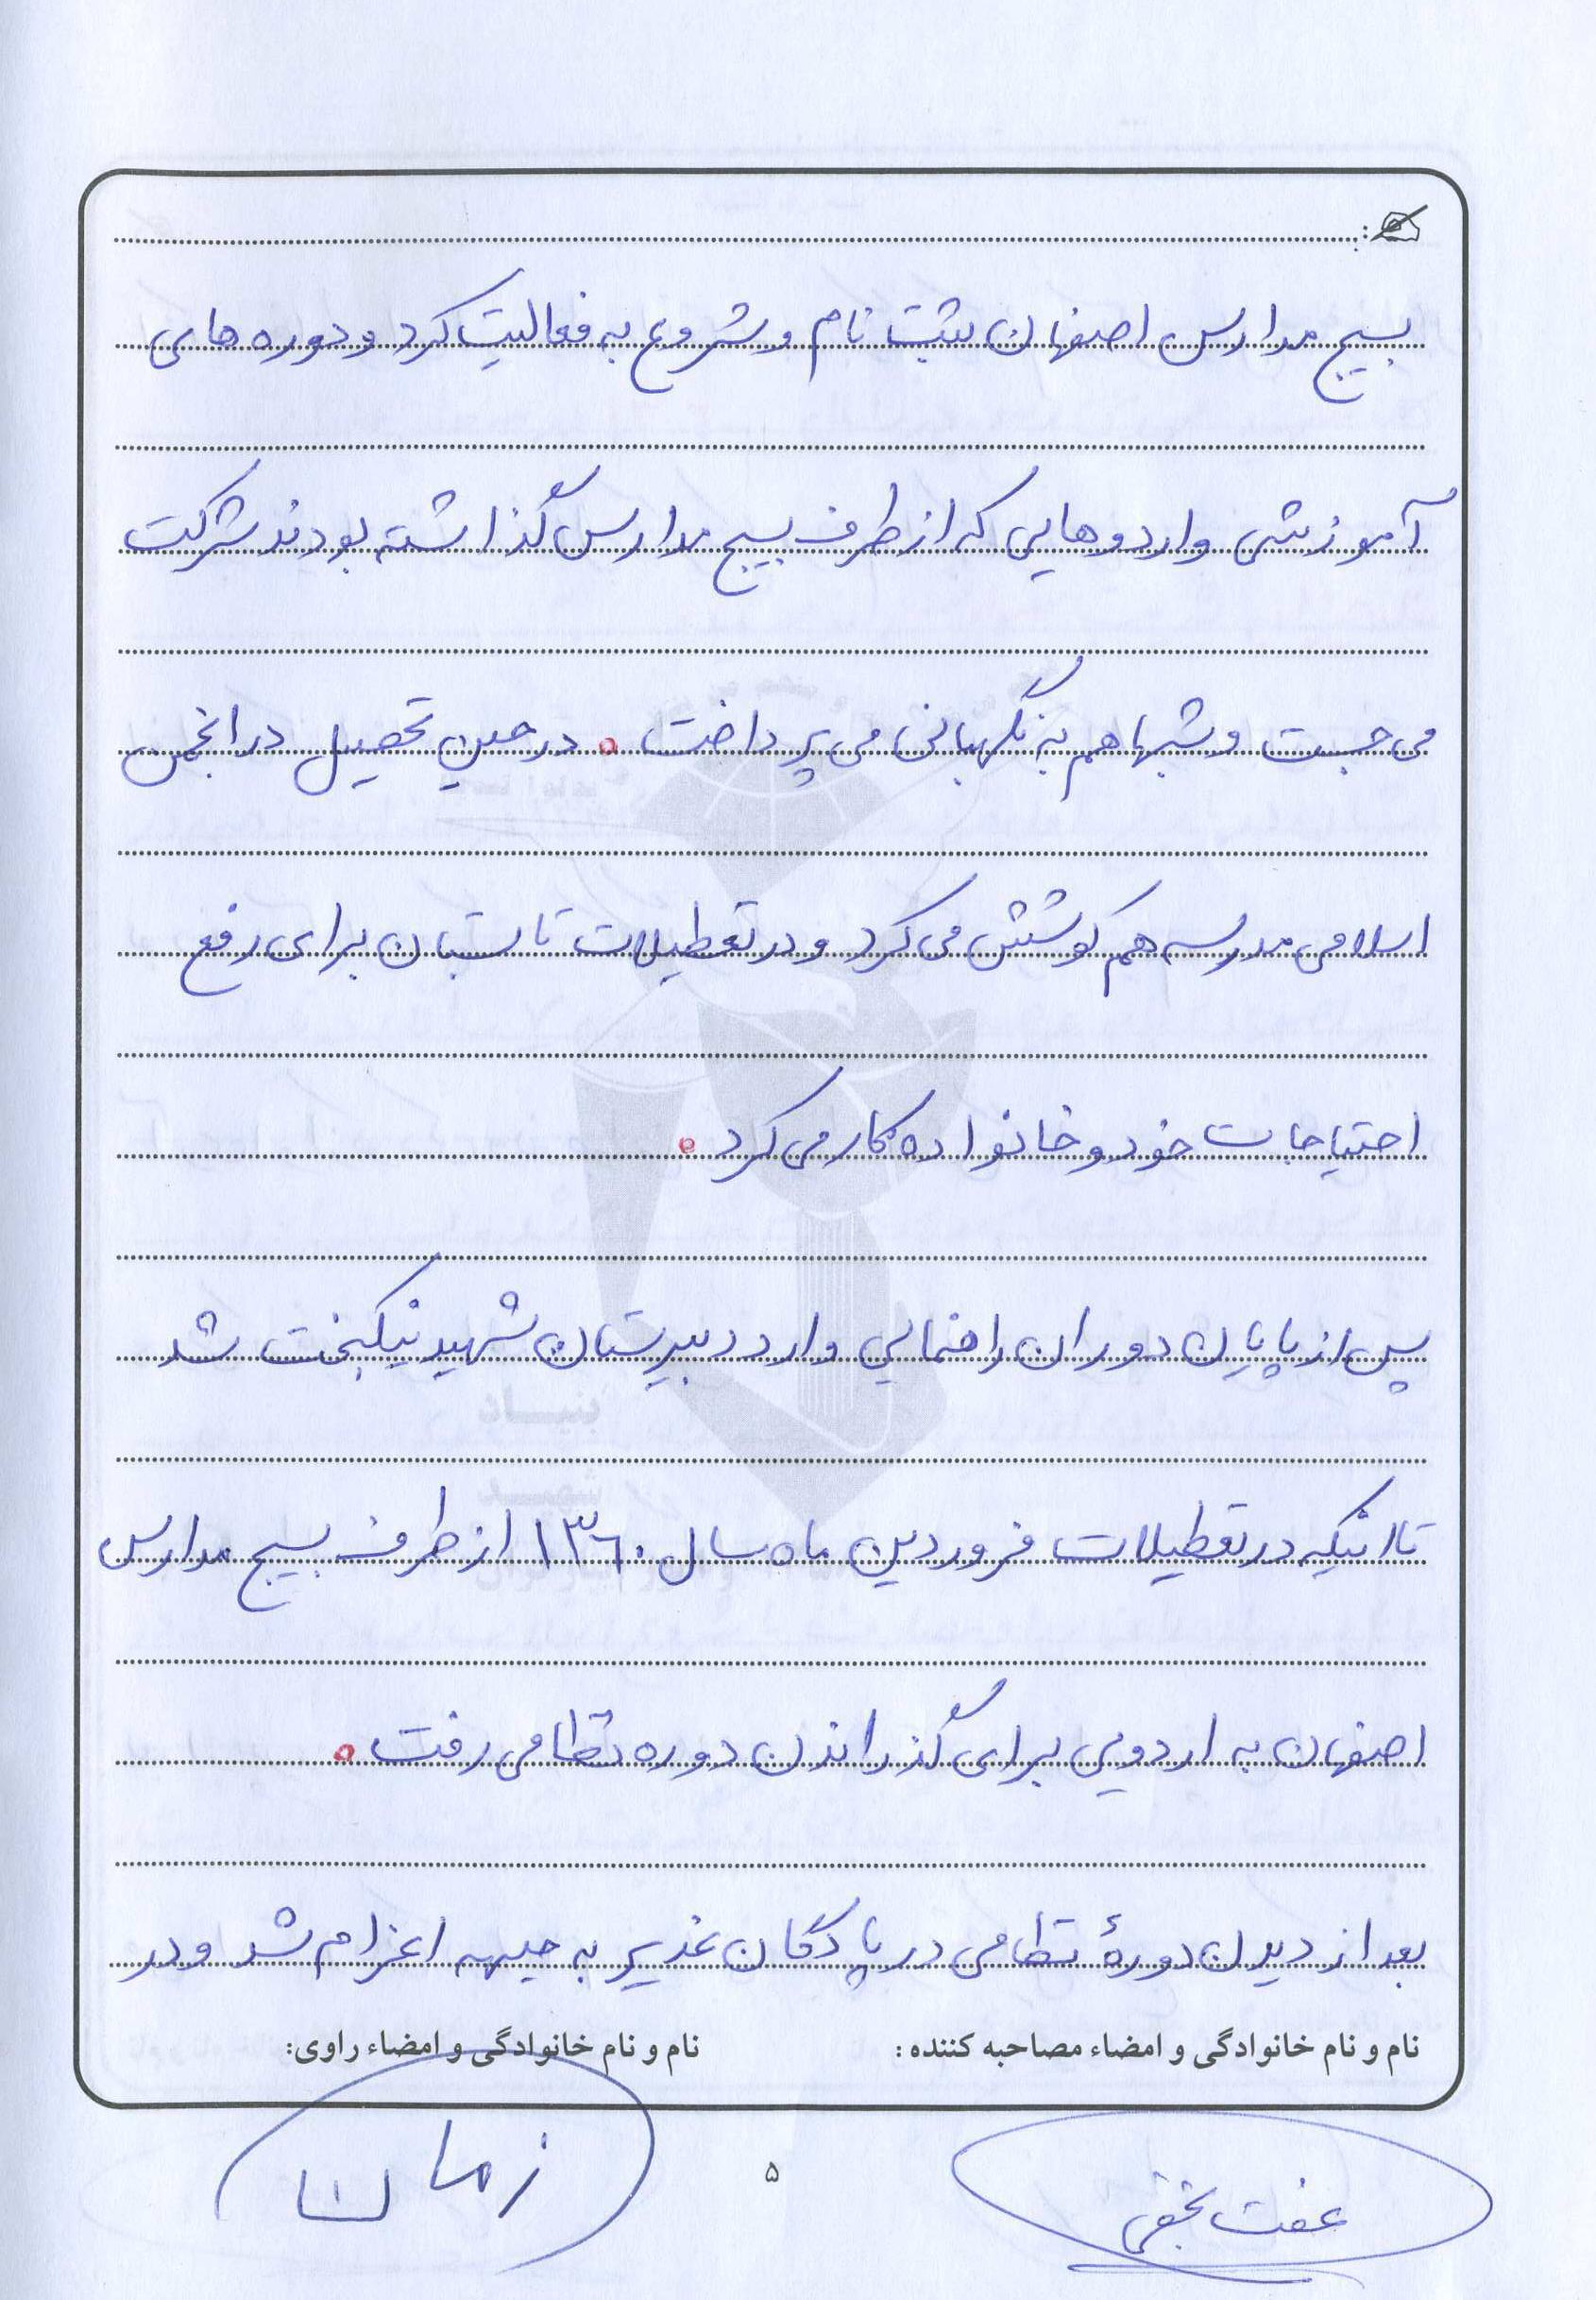 بسیج مدارس اصفهان ثبت نام و شروع به فعالیت کرد و دوره های
آموزشی و اردوهایی که از طرف بسیج مدارس گذاشته بودند شرکت
می جست و شبها هم به نگهبانی می پرداخت. در حین تحصیل در انجمن
اسلامی مدرسه هم کوشش می کرد و در تعطیلات تابستان برای رفع
احتیاجات خود و خانواده کار می کرد.
پس از پایان دوران راهنمایی وارد دبیرستان شهید نیکبخت شد
تا اینکه در تعطیلات فروردین ماه سال ۱۳۶۰ از طرف بسیج مدارس
اصفهان به اردویی برای گذراندن دوره نظامی رفت.
بعد از دیدن دورهٔ نظامی در پادگان غدیر به جبهه اعزام شد و در
نام و نام خانوادگی و امضاء مصاحبه کننده: نام و نام خانوادگی و امضاء راوی:
عفت نجفی ۵ زمان